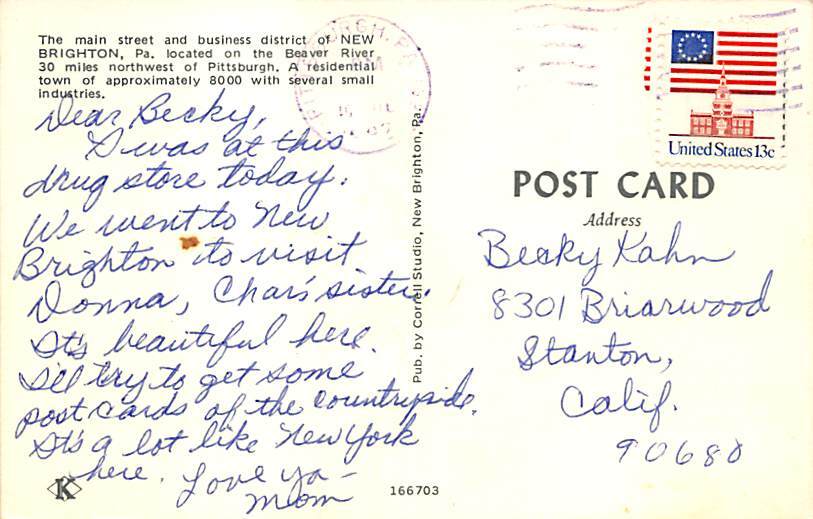 The main street and business district of NEW
BRIGHTON, Pa. located on the Beaver River
30 miles northwest of Pittsburgh. A residential
town of approximately 8000 with several small
industries.
Dear Becky,
I was at this
drug store today.
We went to New
Brighton to visit
Donna, Char's sister.
It's beautiful here.
I'll try to get some
post cards of the countryside.
It's a lot like New York
here. Love ya -
Mom
K
166703
Pub. by Cornell Studio, New Brighton, Pa.
PITTSBURGH, PA
United States 13c
POST CARD
Address
Becky Kahn
8301 Briarwood
Stanton,
Calif.
90680